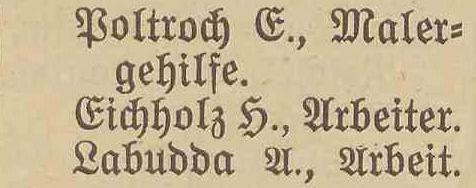 Poltroch E., Maler=
gehilfe.
Eichholz H., Arbeiter.
Labudda A., Arbeit.